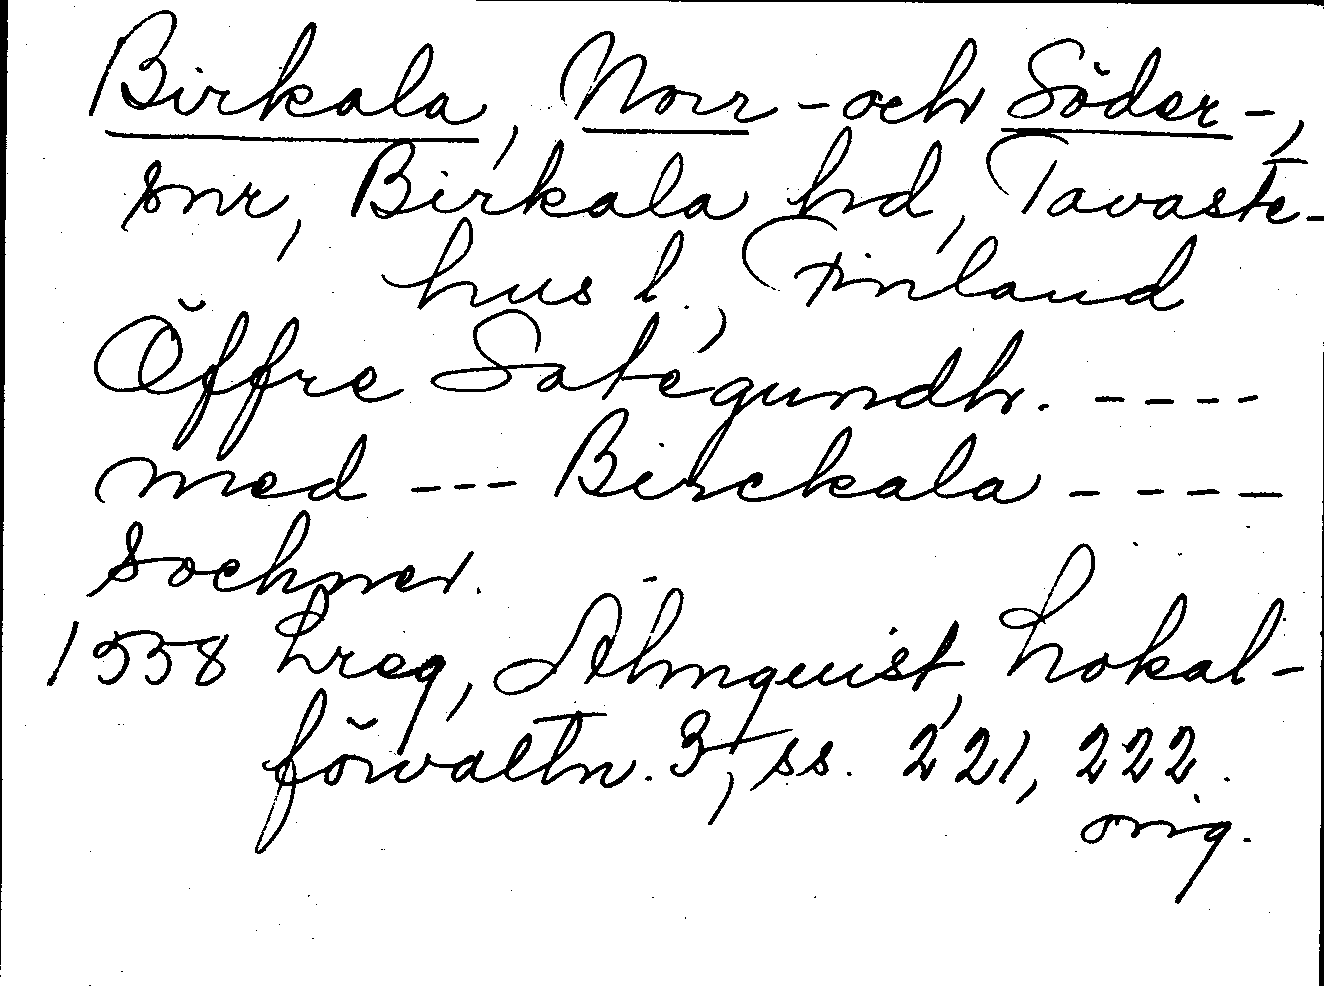 Birkala, Norr- och Söder-,
snr, Birkala hd, Tavaste-
hus l., Finland
Öffre Sategundh. ----
med --- Birckala ----
sochner.
1558 Lreg, Almquist, Lokal-
förvaltn. 3, ss. 221, 222.
orig.